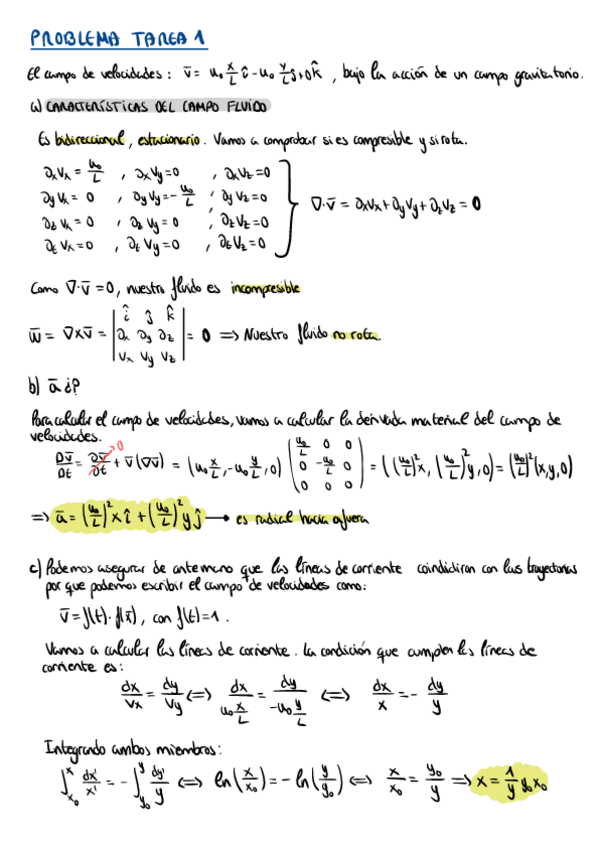 PROBLEMA TAREA 1
El campo de velocidades: v̄ = u₀ x/L î - u₀ y/L ĵ + 0 k̂, bajo la acción de un campo gravitatorio.
a) CARACTERÍSTICAS DEL CAMPO FLUIDO
Es bidireccional, estacionario. Vamos a comprobar si es compresible y si rota.
∂ₓVₓ = u₀/L , ∂ₓVy = 0 , ∂ₓVz = 0
∂yVₓ = 0 , ∂yVy = - u₀/L , ∂yVz = 0
∂zVₓ = 0 , ∂zVy = 0 , ∂zVz = 0
∂tVₓ = 0 , ∂tVy = 0 , ∂tVz = 0
∇·v̄ = ∂ₓVₓ + ∂yVy + ∂zVz = 0
Como ∇·v̄ = 0, nuestro fluido es incompresible
w̄ = ∇x v̄ = | î ĵ k̂ |
| ∂ₓ ∂y ∂z | = 0 => Nuestro fluido no rota.
| Vₓ Vy Vz |
b) ā ¿?
Para calcular el campo de velocidades, vamos a calcular la derivada material del campo de
velocidades.
Dv̄/Dt = ∂v̄/∂t → 0 + v̄(∇v̄) = (u₀ x/L, -u₀ y/L, 0) ( u₀/L 0 0 ; 0 -u₀/L 0 ; 0 0 0 ) = ((u₀/L)² x, (u₀/L)² y, 0) = (u₀/L)² (x,y,0)
=> ā = (u₀/L)² x î + (u₀/L)² y ĵ → es radial hacia afuera
c) Podemos asegurar de antemano que las líneas de corriente coindidiran con las trayectorias
por que podemos escribir el campo de velocidades como:
v̄ = f(t)·f(x̄), con f(t) = 1.
Vamos a calcular las líneas de corriente. La condición que cumplen las líneas de
corriente es:
dx/Vx = dy/Vy <=> dx/(u₀ x/L) = dy/(-u₀ y/L) <=> dx/x = - dy/y
Integrando ambos miembros:
∫ₓ₀ˣ dx'/x' = - ∫y₀^y dy'/y <=> ln(x/x₀) = - ln(y/y₀) <=> x/x₀ = y₀/y => x = 1/y y₀ x₀